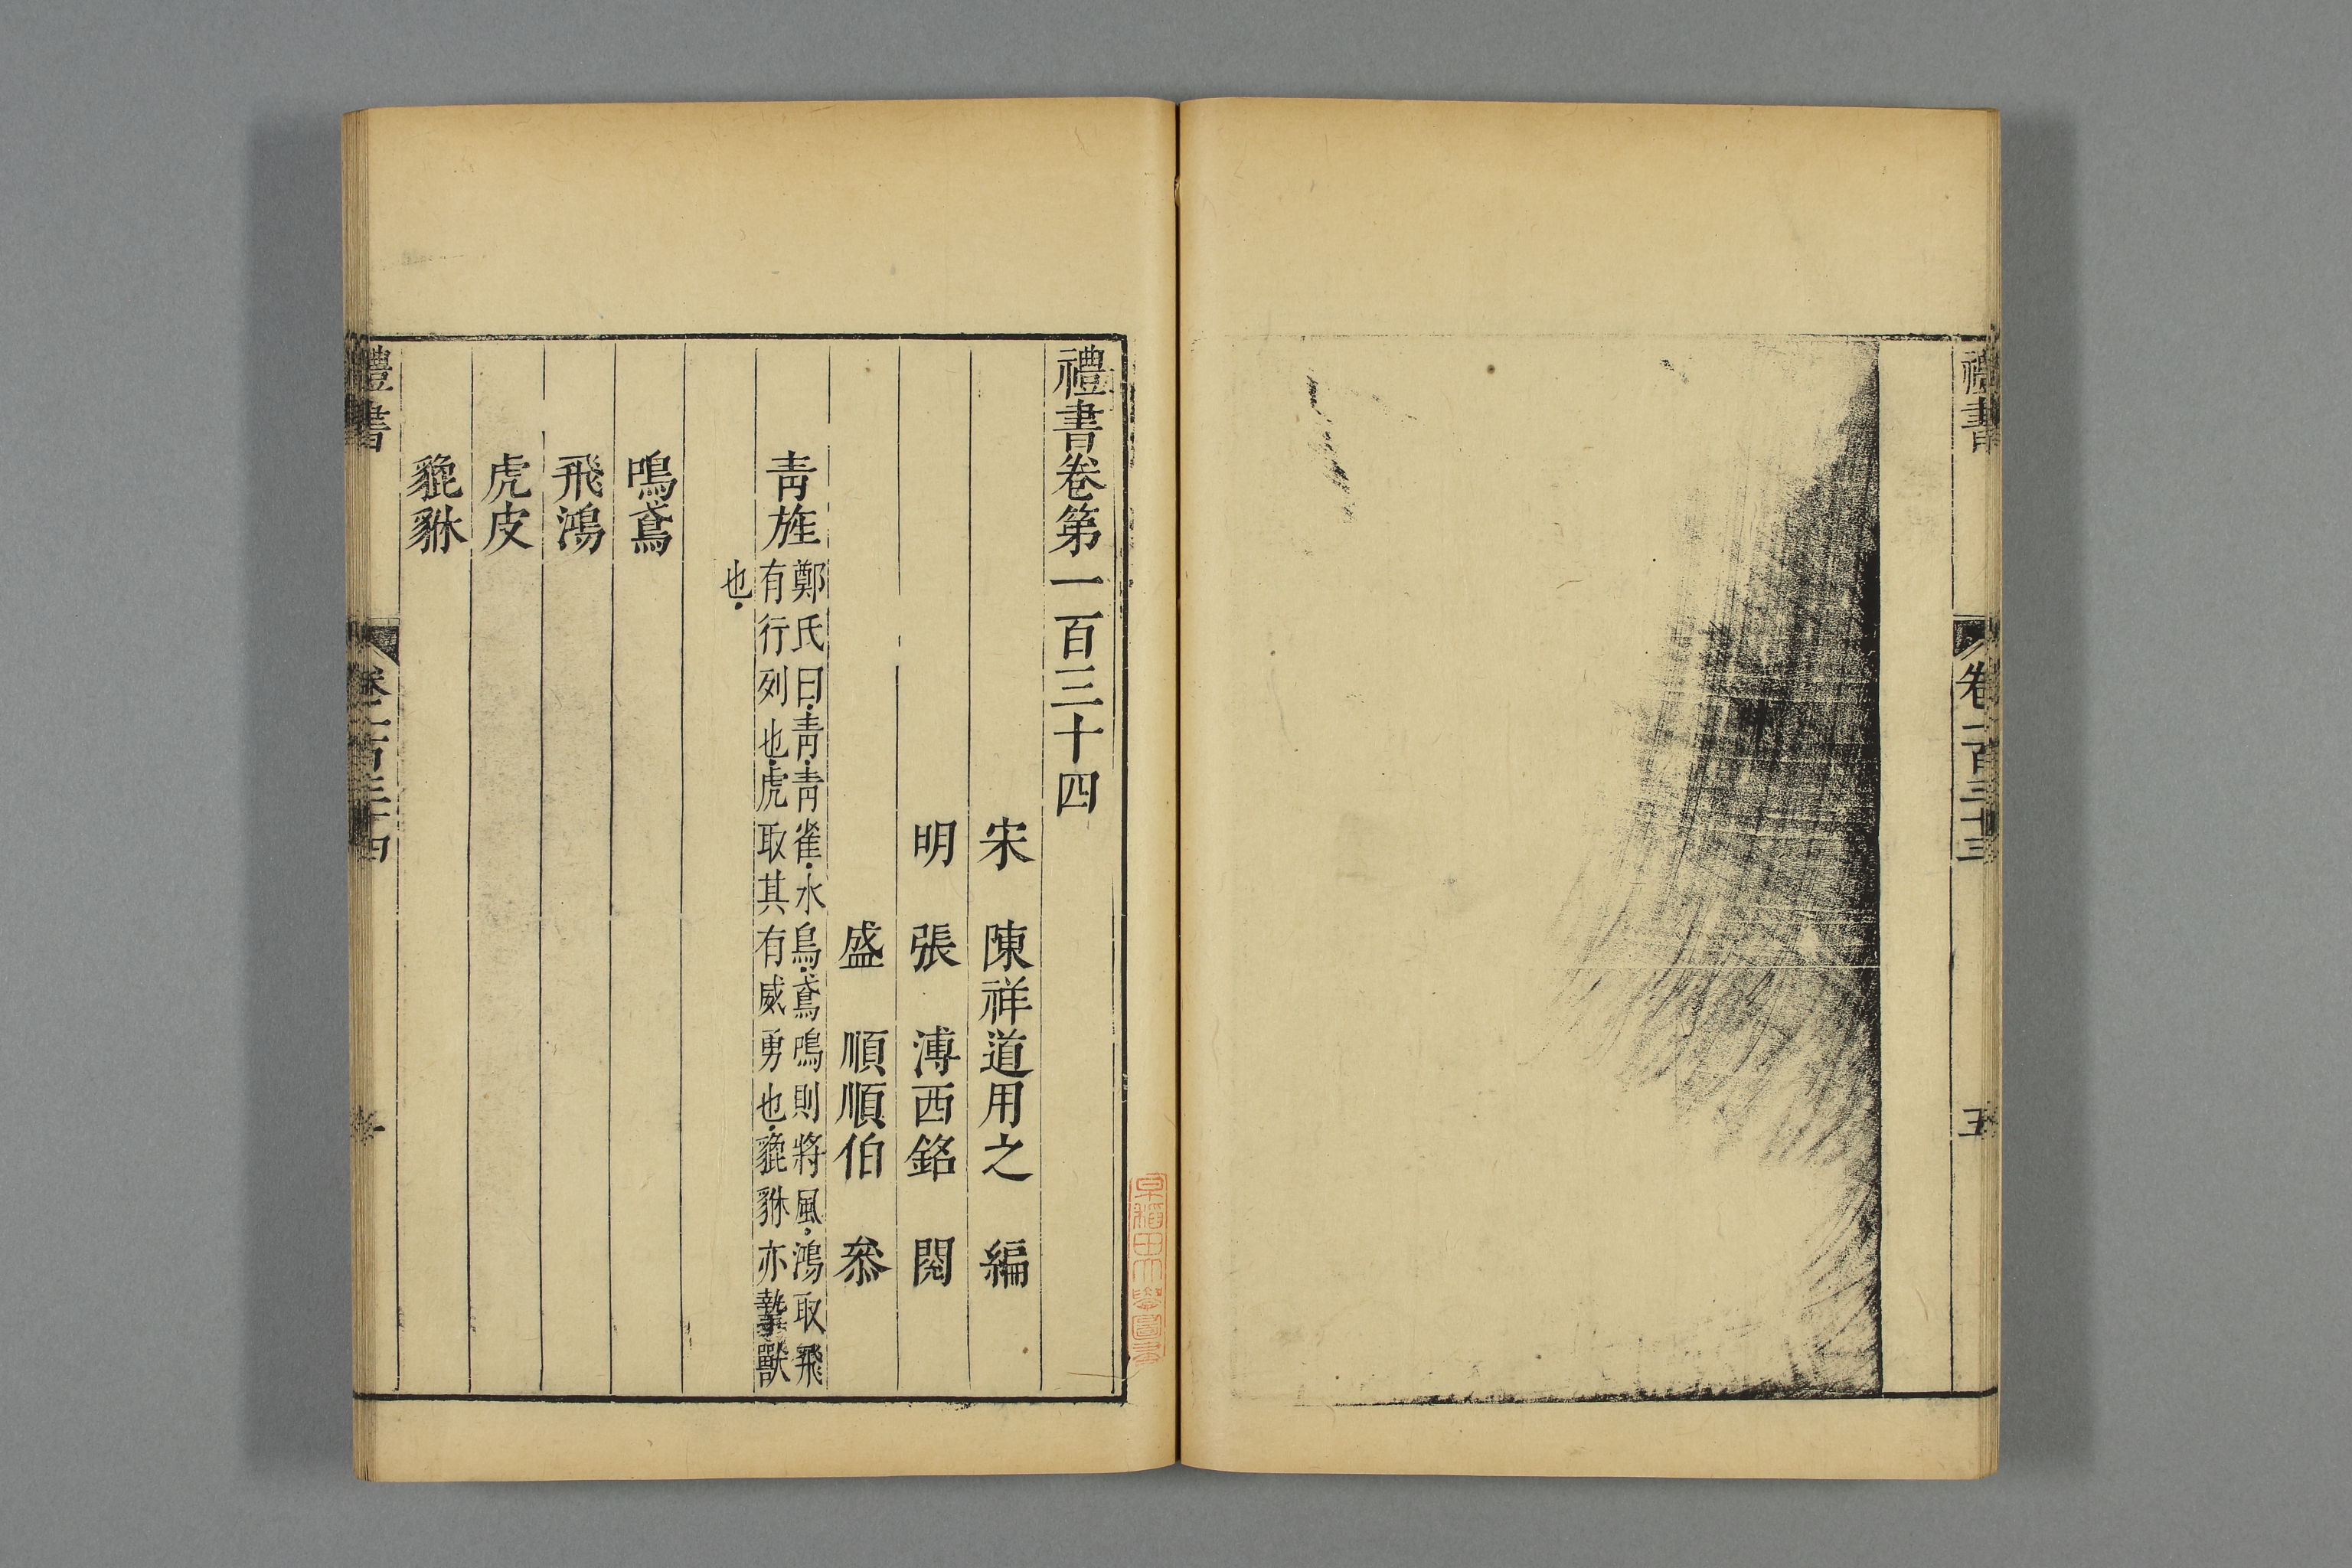 禮書
卷一百三十三
五
禮書卷第一百三十四
宋　陳祥道用之　編
明　張　溥西銘　閱
盛　順順伯　叅
青旌鄭氏曰青青雀水鳥鳶鳴則將風鴻取飛
有行列也虎取其有威勇也貔貅亦摯獸
也
鳴鳶
飛鴻
虎皮
貔貅
禮書
卷一百三十四
一
早稻田大學圖書